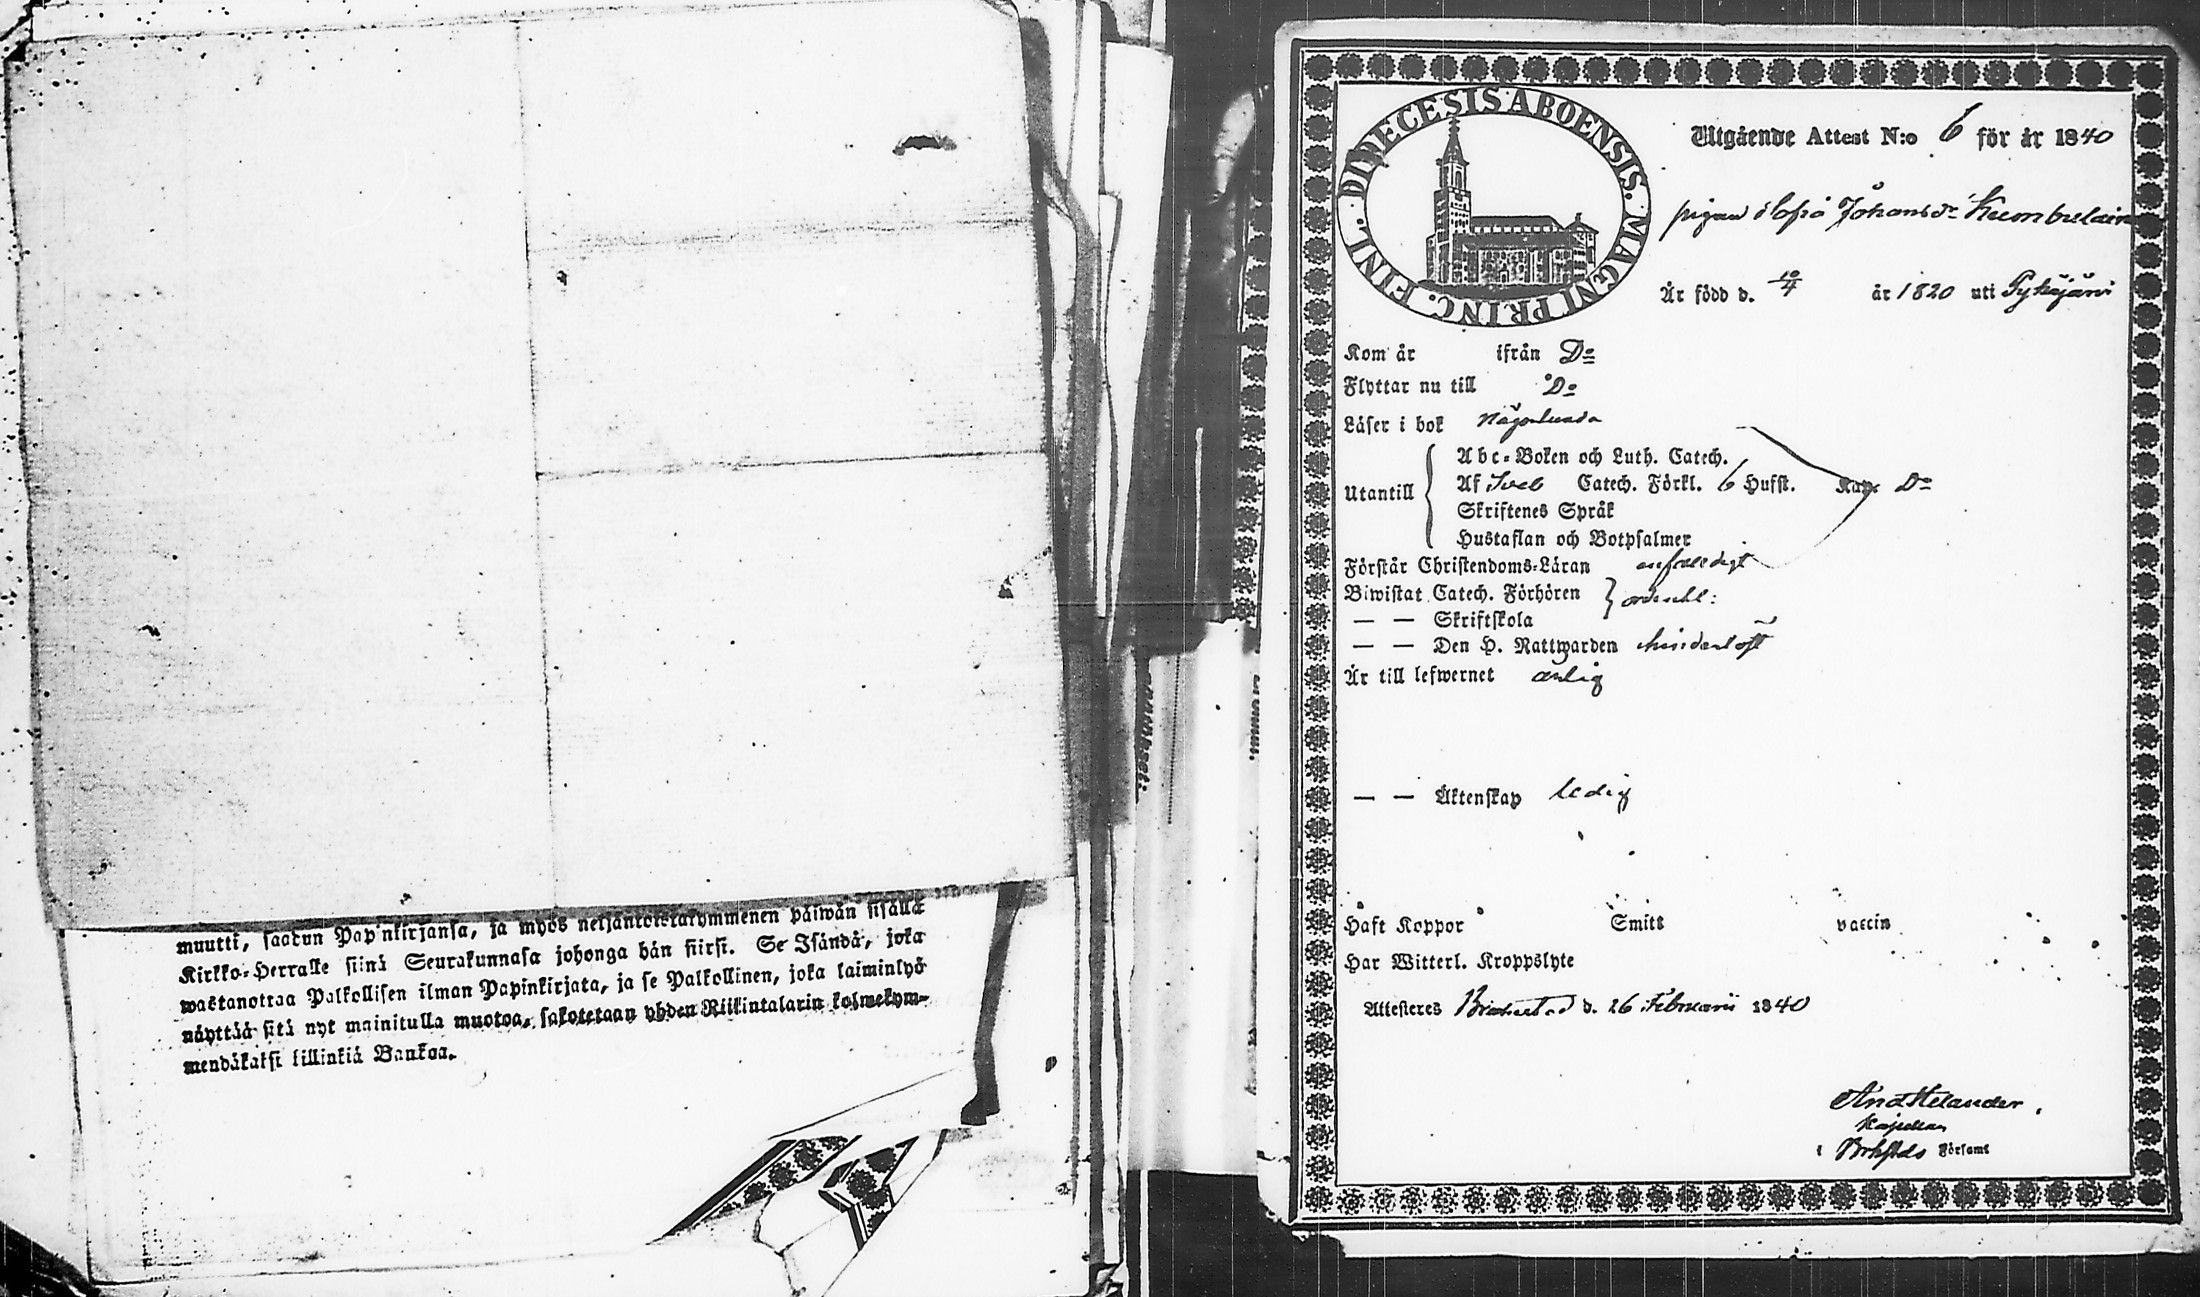 muutti, saadun Papinkirjansa, ja myös neljäntoistakymmenen päiwän sisällä
Kirkko-Herralle siinä Seurakunnasa johonga hän siirsi. Se Isändä, joka
wastanottaa Palkollisen ilman Papinkirjata, ja se Palkollinen, joka laiminlyö
näyttää sitä nyt mainitulla muotoa, sakotetaan yhden Riikintalarin kolmekym-
mendäkaksi killinkiä Bankoa.
DIOECESIS ABOENSIS. MAGNI PRINC. FINL.
Utgående Attest N:o 6 för år 1840
pigan Sofia Johansdr
Är född d. 10/4 år 1820 uti Pyhäjärvi
Kom år ifrån Do
Flyttar nu till Do
Läser i bok någorlunda
Utantill
Abc-Boken och Luth. Catech.
Af Sveb Catech. Förkl. 6 Hufst. Kap. Do
Skriftenes Språk
Hustaflan och Botpsalmer
Förstår Christendoms-Läran enfaldigt
Biwistat Catech. Förhören ordentl:
— — Skriftskola
— — Den H. Nattwarden
Är till lefwernet ärlig
— — Äktenskap ledig
Haft Koppor Smitt vaccin
Har Witterl. Kroppslyte
Attesteras Brahestad d. 26 Februarii 1840
And Helander.
Kapellan
i Brhsteds Församl